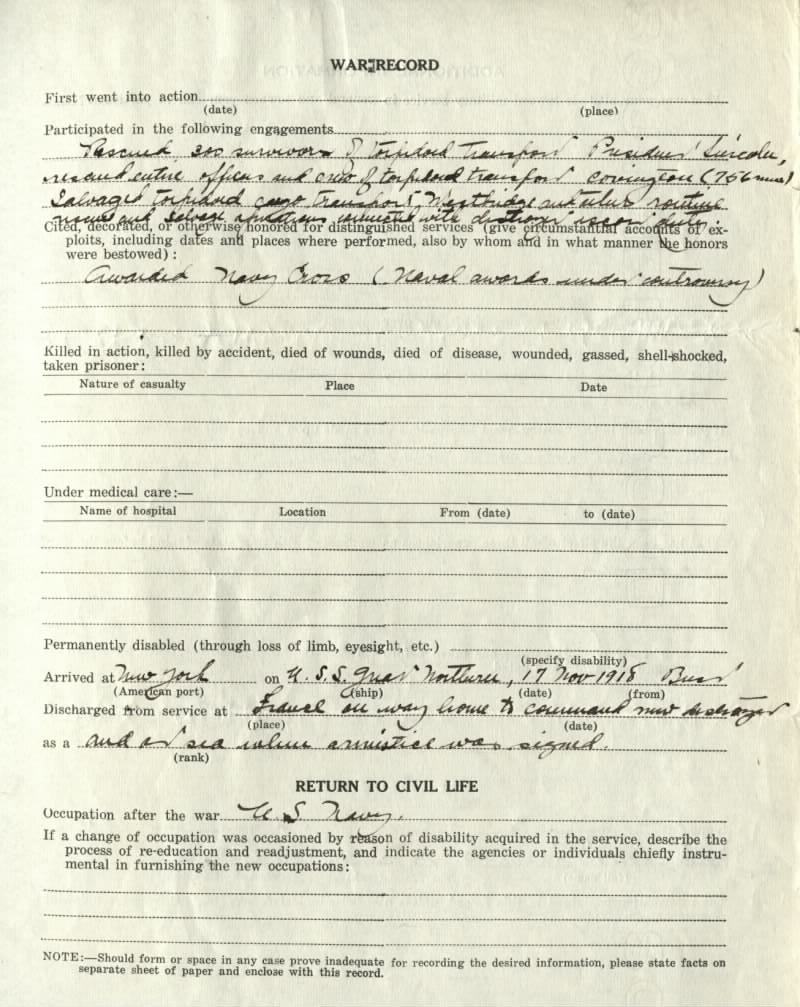 WAR RECORD
First went into action
(date) (place)
Participated in the following engagements
Rescued 300 survivors of torpedoed transport President Lincoln,
rescued entire officers and crew of torpedoed transport Covington (756 men)
Salvaged torpedoed cargo transport, Westbridge and other routine
rescue and salvage operations connected with destroyer escort duty.
Cited, decorated, or otherwise honored for distinguished services (give circumstantial accounts of ex-
ploits, including dates and places where performed, also by whom and in what manner the honors
were bestowed) :
Awarded Navy Cross (Naval awards under controversy)
Killed in action, killed by accident, died of wounds, died of disease, wounded, gassed, shell-shocked,
taken prisoner :
Nature of casualty Place Date
Under medical care :—
Name of hospital Location From (date) to (date)
Permanently disabled (through loss of limb, eyesight, etc.)
(specify disability)
Arrived at New York on U.S.S. Great Northern, 17 Nov 1918 Brest
(American port) (ship) (date) (from)
Discharged from service at France on way home to command new destroyer
(place) (date)
as a and at sea when armistice was signed.
(rank)
RETURN TO CIVIL LIFE
Occupation after the war U.S. Navy.
If a change of occupation was occasioned by reason of disability acquired in the service, describe the
process of re-education and readjustment, and indicate the agencies or individuals chiefly instru-
mental in furnishing the new occupations :
NOTE :—Should form or space in any case prove inadequate for recording the desired information, please state facts on
separate sheet of paper and enclose with this record.